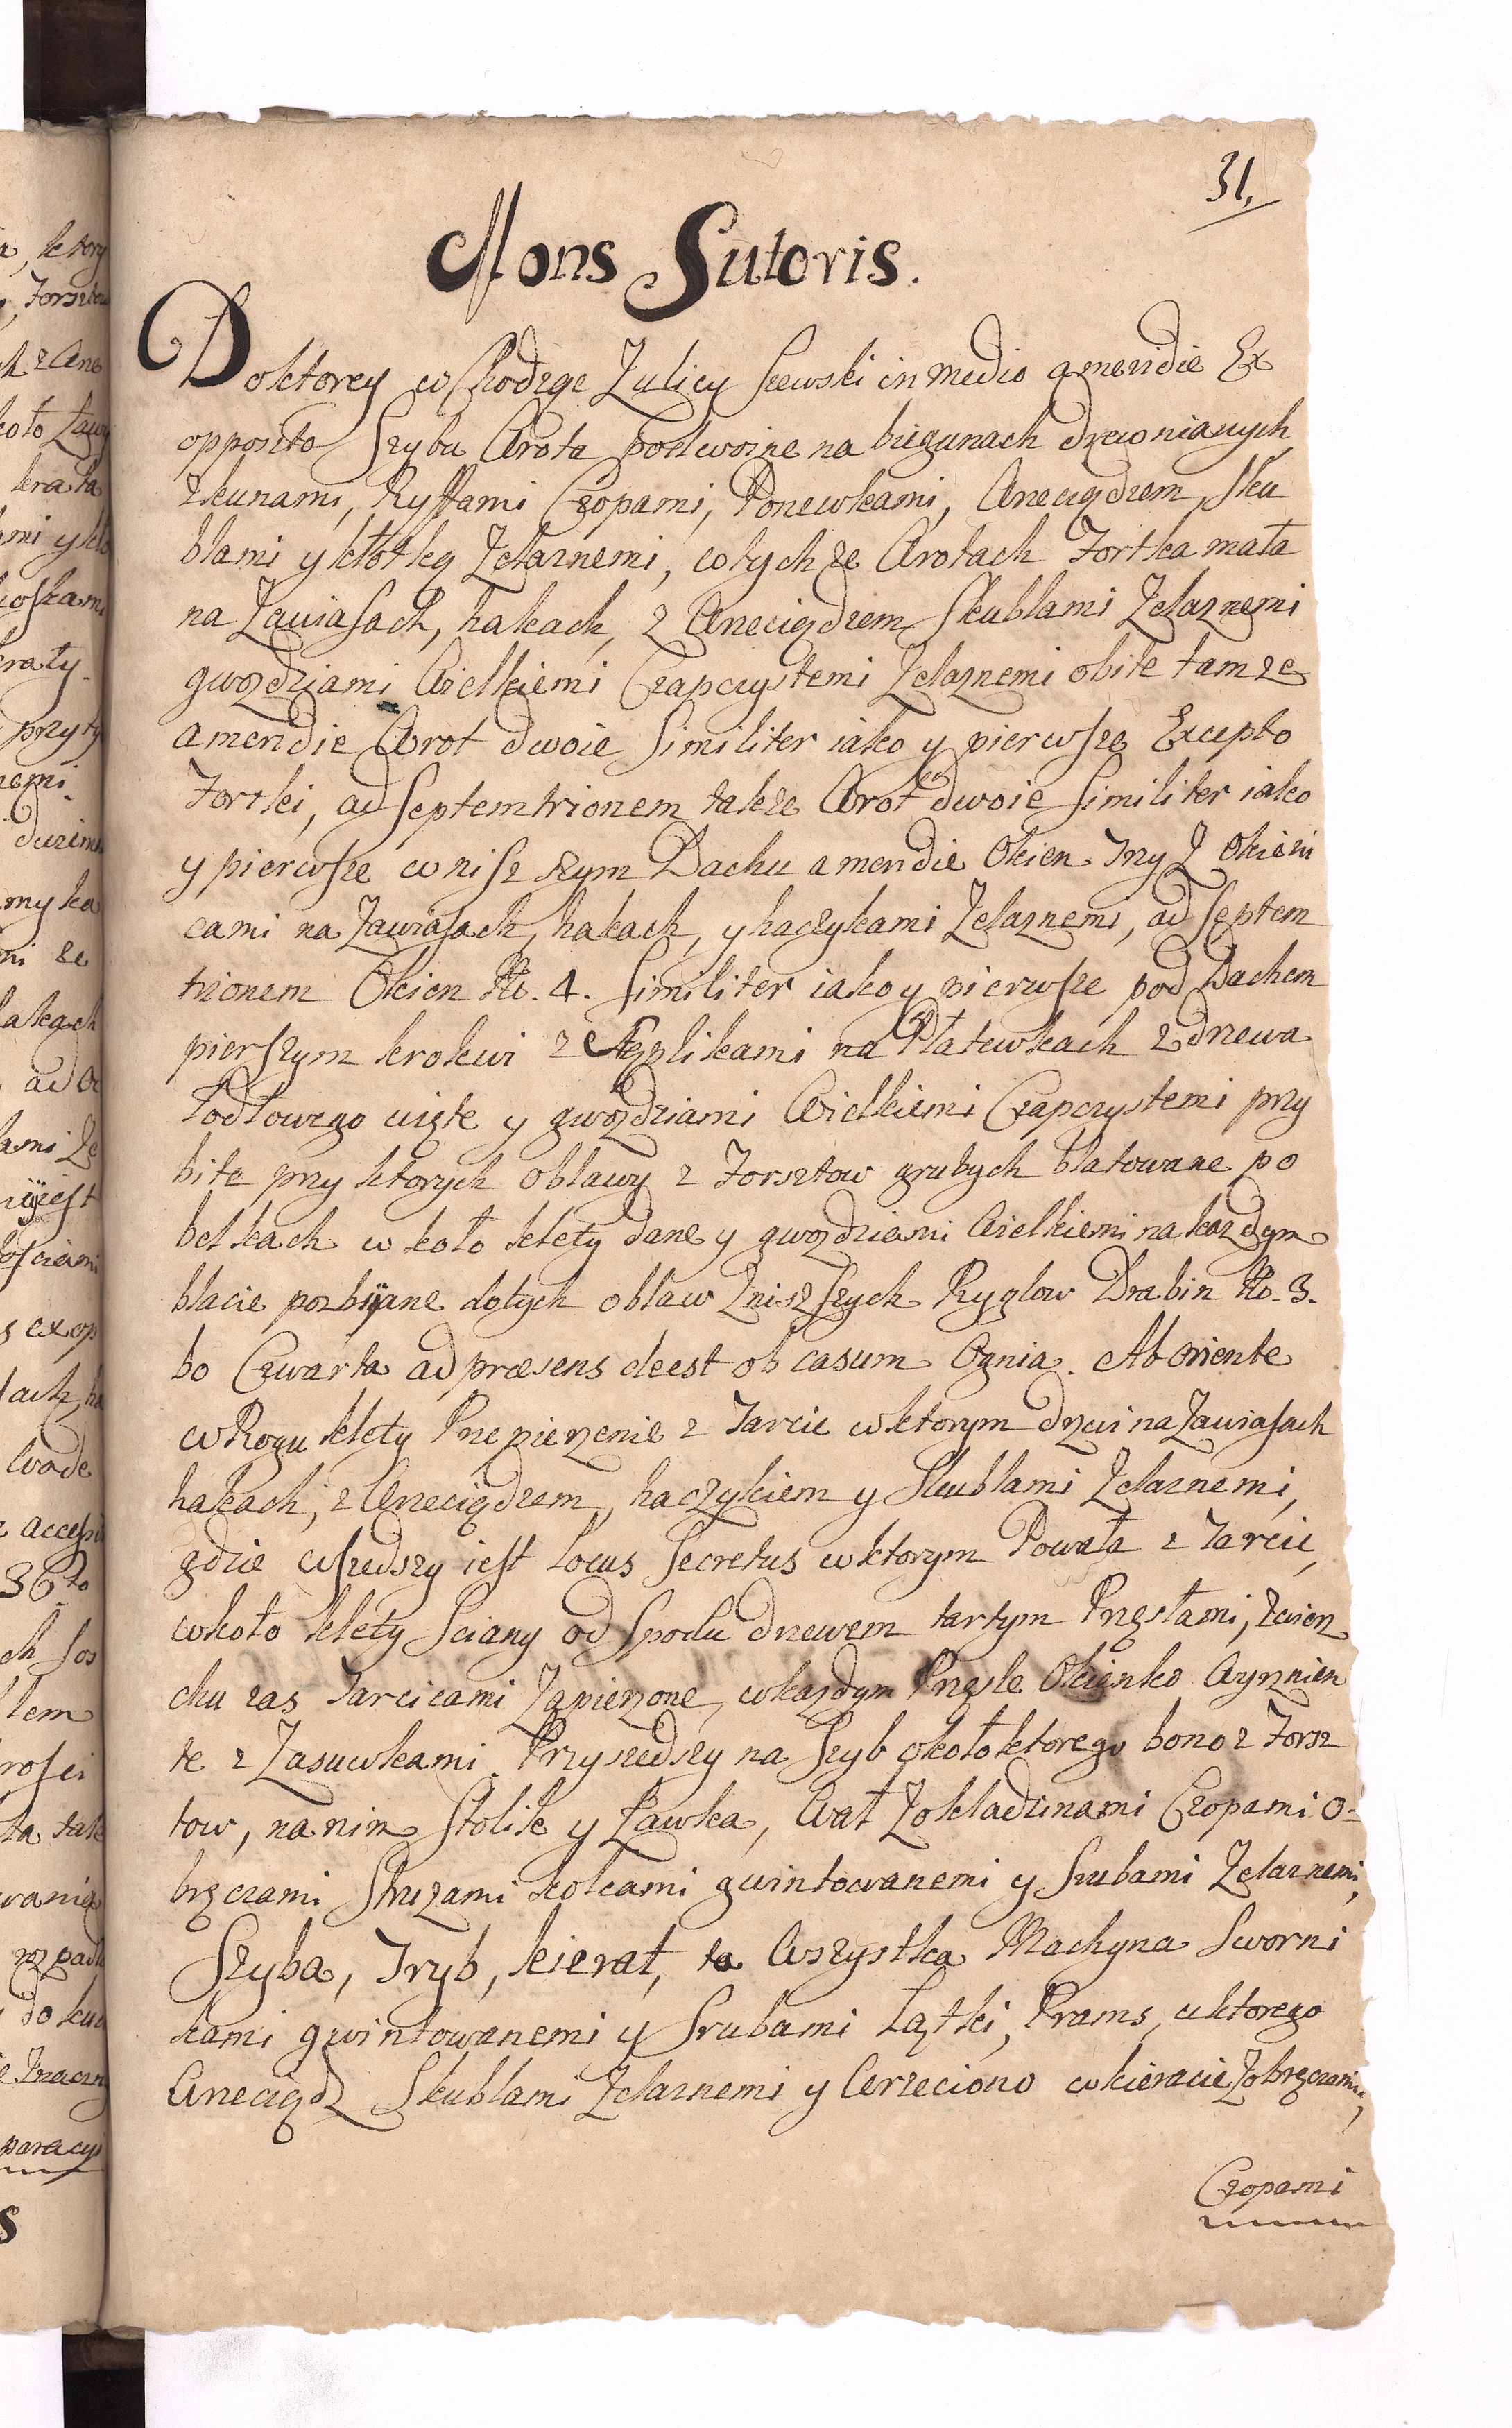 31.
Mons Sutoris.
Doktorey wchodząc Zulicy Szewski in medio a meridie Ex
opposito Szybu Wrota podwoine na biegunach drewnianych,
zkunami, Ryffami Czopami, Ponewkami, Wrzeciądzem, sku
blami y kłotką Zelaznemi, wtychze Wrotach Fortka mała
na Zawiasach, hakach, z Wrzeciądzem Skublami Zelaznemi
gwozdziami Wielkiemi Czapczystemi Zelaznemi obite tamze
a meridie Wrot dwoie Similiter iako y pierwsze Excepto
Fortki, ad Septemtrionem takze Wrot dwoie Similiter iako
y pierwsze wnisz szym Dachu a meridie Okien Trzy Z Okieni
cami na Zawiasach, hakach, y haczykami Zelaznemi, ad Septem
trionem Okien No. 4. Similiter iako y pierwsze pod Dachem
pierszym krokwi z Stęplikami na Płatewkach z drzewa
Jodłowego więte y gwozdziami Wielkiemi Czapczystemi przy
bite przy ktorych obławy z Forsztow grubych blatowane po
belkach w koło klety dane y gwozdziami Wielkiemi na kazdym
blacie pozbijane dotych obław Znisz szych Ryglow Drabin No. 3.
bo Czwarta ad præsens deest ob casum Ognia. Ab Oriente
wRogu klety Przepierzenie z Tarcic wktorym drzwi na Zawiasach
hakach, z Wrzeciądzem, haczykiem y Skublami Zelaznemi,
gdzie wszedszy iest Locus Secretus wktorym Powała z Tarcic,
wkoło klety Sciany od Spodu drzewem tartym Przęsłami, zwierz
chu zas Tarcicami Zapierzone, wkazdym Przęsle Okienko Wyrznien
te z Zasuwkami. Przyszedszy na Szyb około ktorego bono z Forsz
tow, na nim Stolik y Ławka, Wał Zokładzinami Czopami o-
bręczami Struzami kolcami gwintowanemi y Srubami Zelaznemi,
Szyba, Tryb, kierat, ta Wszystka Machyna Sworni
kami gwintowanemi y Srubami Łątki, Prams, uktorego
Wrzeciądz Skublami Zelaznemi y Wrzeciono wkieracie Zobręczami,
Czopami